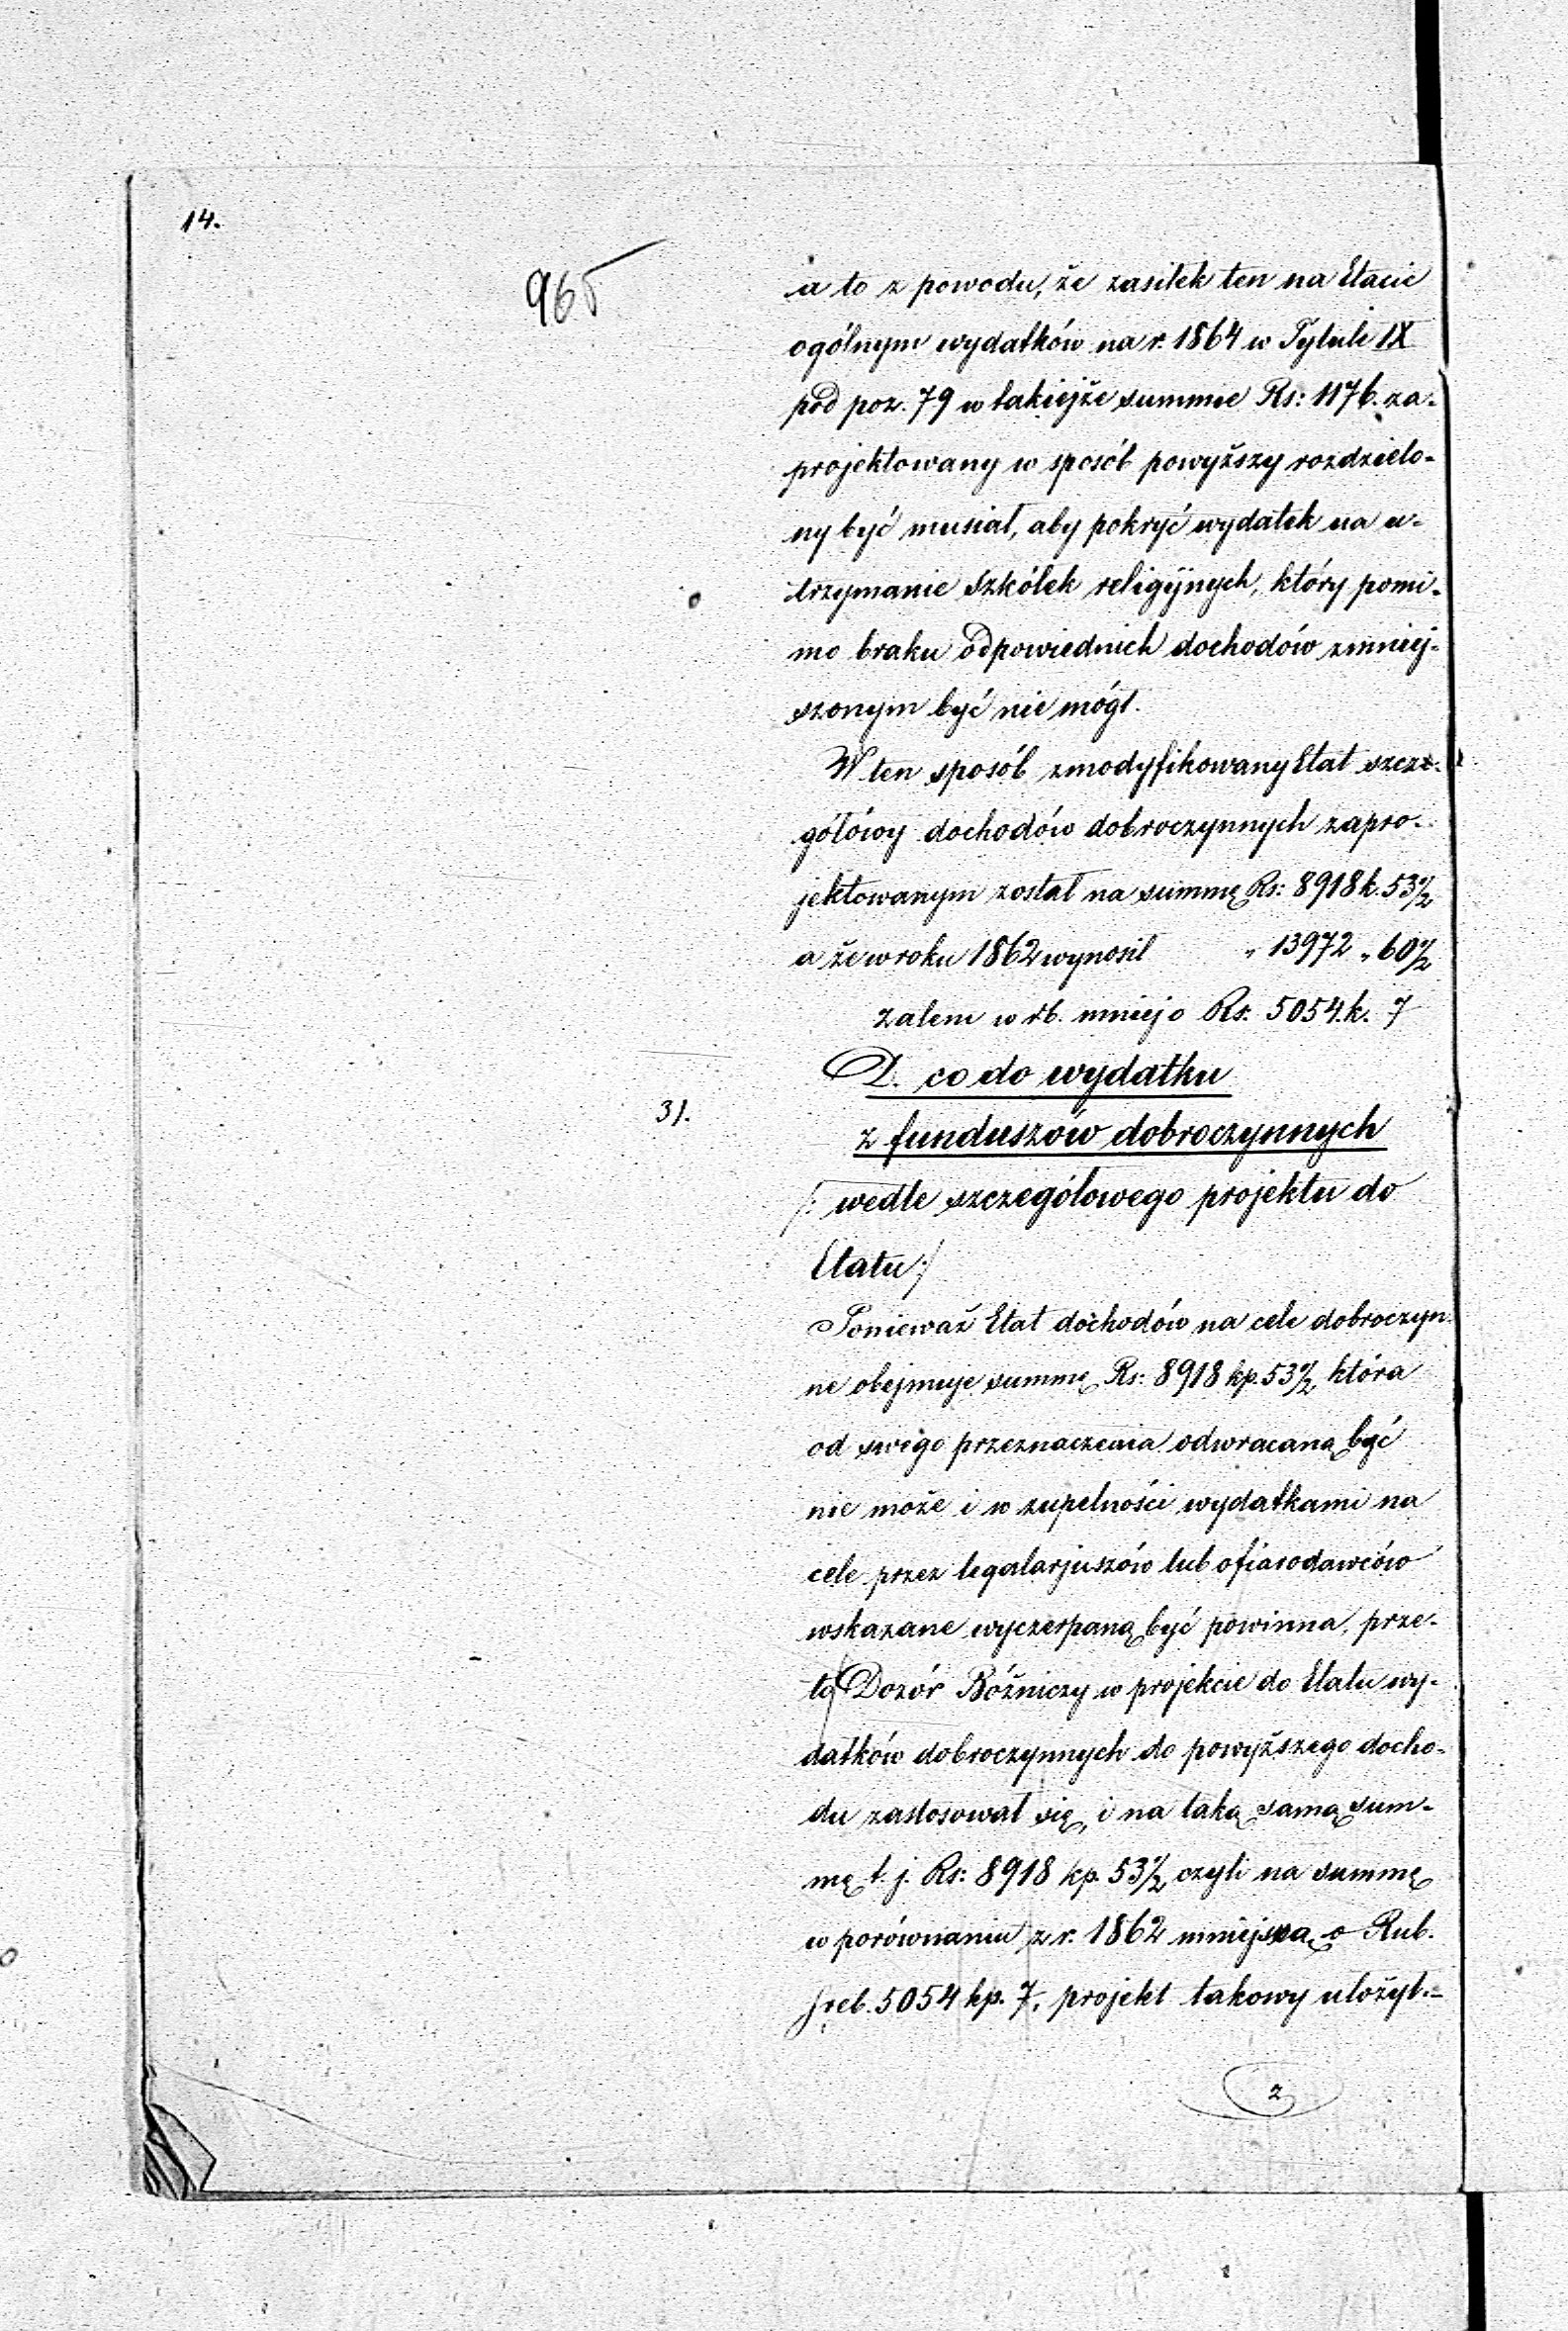 14.
965
a to z powodu, że zasiłek ten na Etacie
ogólnym wydatków na r. 1864 w Tytule IX
pod poz. 79 w takiejże summie Rs: 1176. za-
projektowany w sposób powyższy rozdzielo-
ny być musiał, aby pokryć wydatek na u-
trzymanie szkółek religijnych, który pomi-
mo braku odpowiednich dochodów zmniej-
szonym być nie mógł.
W ten sposób zmodyfikowany Etat szcze-
gółówy dochodów dobroczynnych zapro-
jektowanym został na summę Rs: 8918 k. 53½
a że w roku 1862 wynosił " 13972 " 60½
zatem w rb. mniej o Rs. 5054. k. 7
D. co do wydatku
31.
z funduszów dobroczynnych
/: wedle szczegółowego projektu do
Etatu :/
Ponieważ Etat dochodów na cele dobroczyn-
ne obejmuje summę Rs: 8918 kp. 53½ która
od swego przeznaczenia odwracaną być
nie może i w zupełności wydatkami na
cele przez legatarjuszów lub ofiarodawców
wskazane wyczerpaną być powinna, prze-
to Dozór Bóżniczy w projekcie do Etatu wy-
datków dobroczynnych do powyższego docho-
du zastosował się, i na taką samą sum-
mę t. j. Rs: 8918 kp. 53½ czyli na summę
w porównaniu z r. 1862 mniejszą o Rub.
sreb. 5054 kp. 7, projekt takowy ułożył.=
z